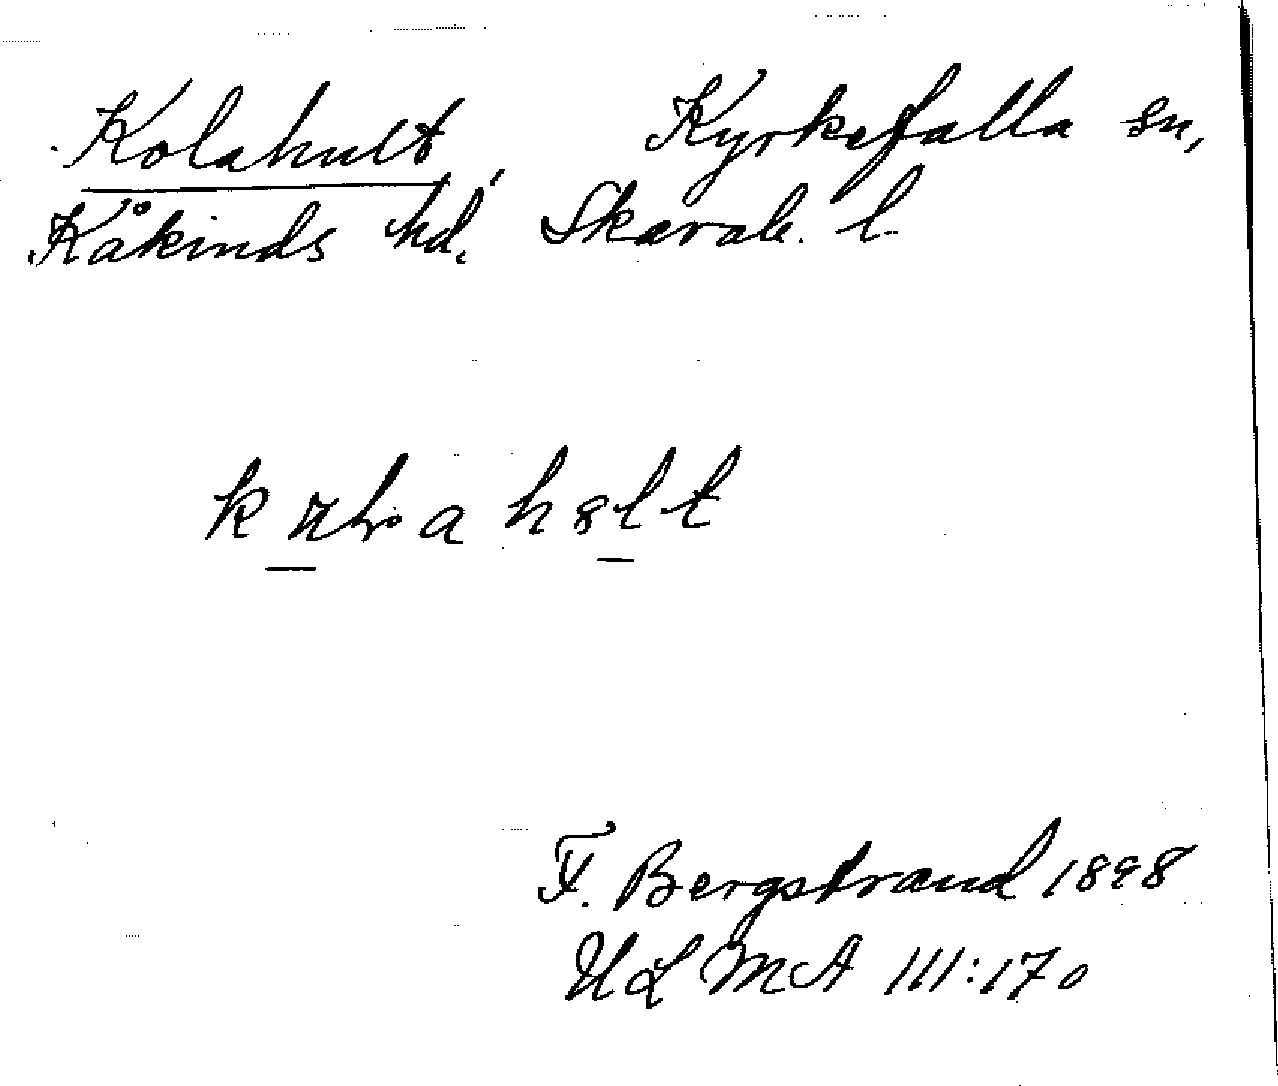 Kolahult, Kyrkefalla sn,
Kåkinds hd. Skarab. l.
F. Bergstrand 1898
ULMA 111:170